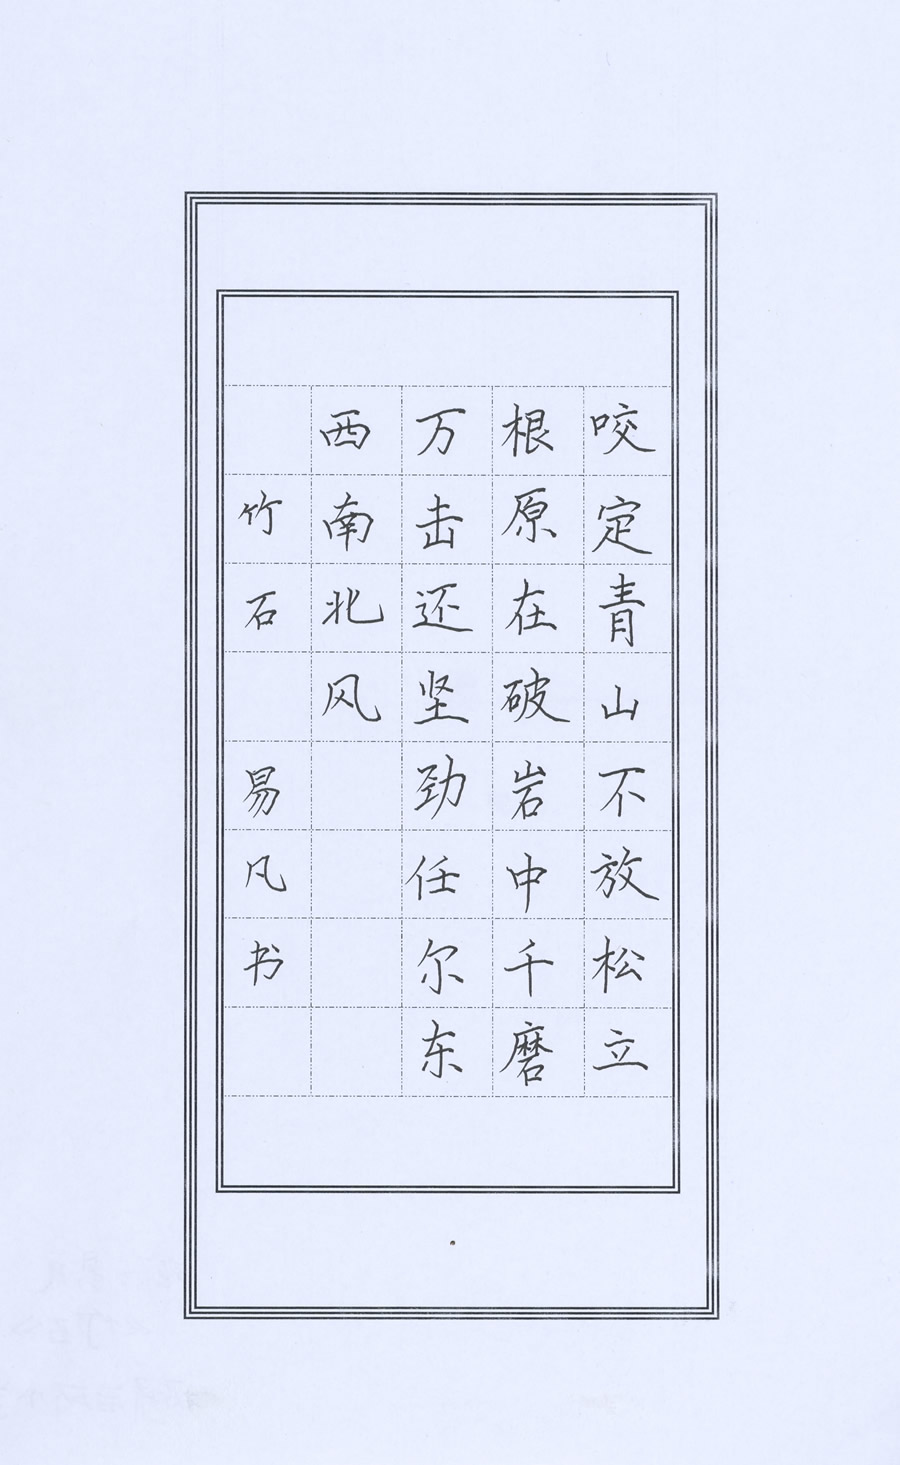 咬定青山不放松立
根原在破岩中千磨
万击还坚劲任尔东
西南北风
竹石 易凡书